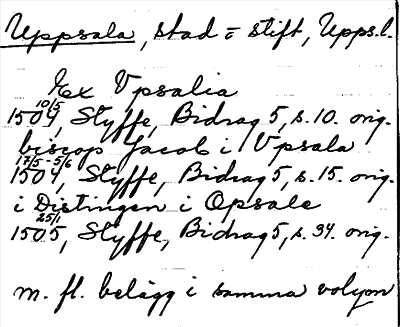 Uppsala, stad = stift, Upps.l.
Ex Vpsalia
10/5
1504, Styffe, Bidrag 5, s. 10. orig.
biscop Jacob i Vpsala
17/5 - 5/6
1504, Styffe, Bidrag 5, s. 15. orig.
i Distingen i Opsale
25/1
1505, Styffe, Bidrag 5, s. 34. orig.
m. fl. belägg i samma volym